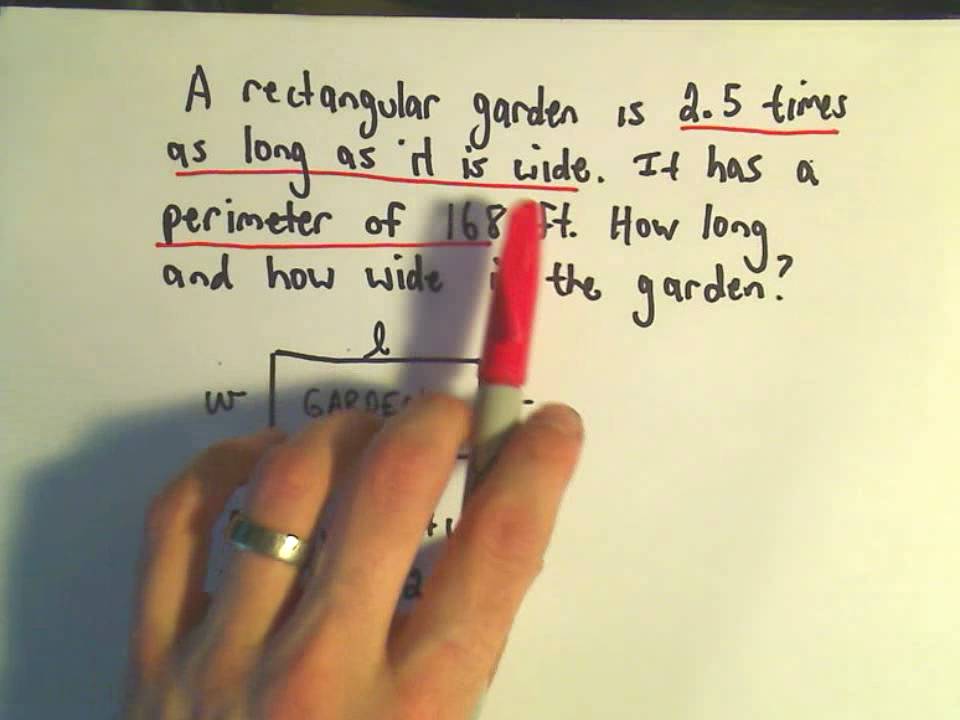 A rectangular garden is 2.5 times
as long as it is wide. It has a
perimeter of 168 ft. How long
and how wide the garden?
l
w GARDEN
2